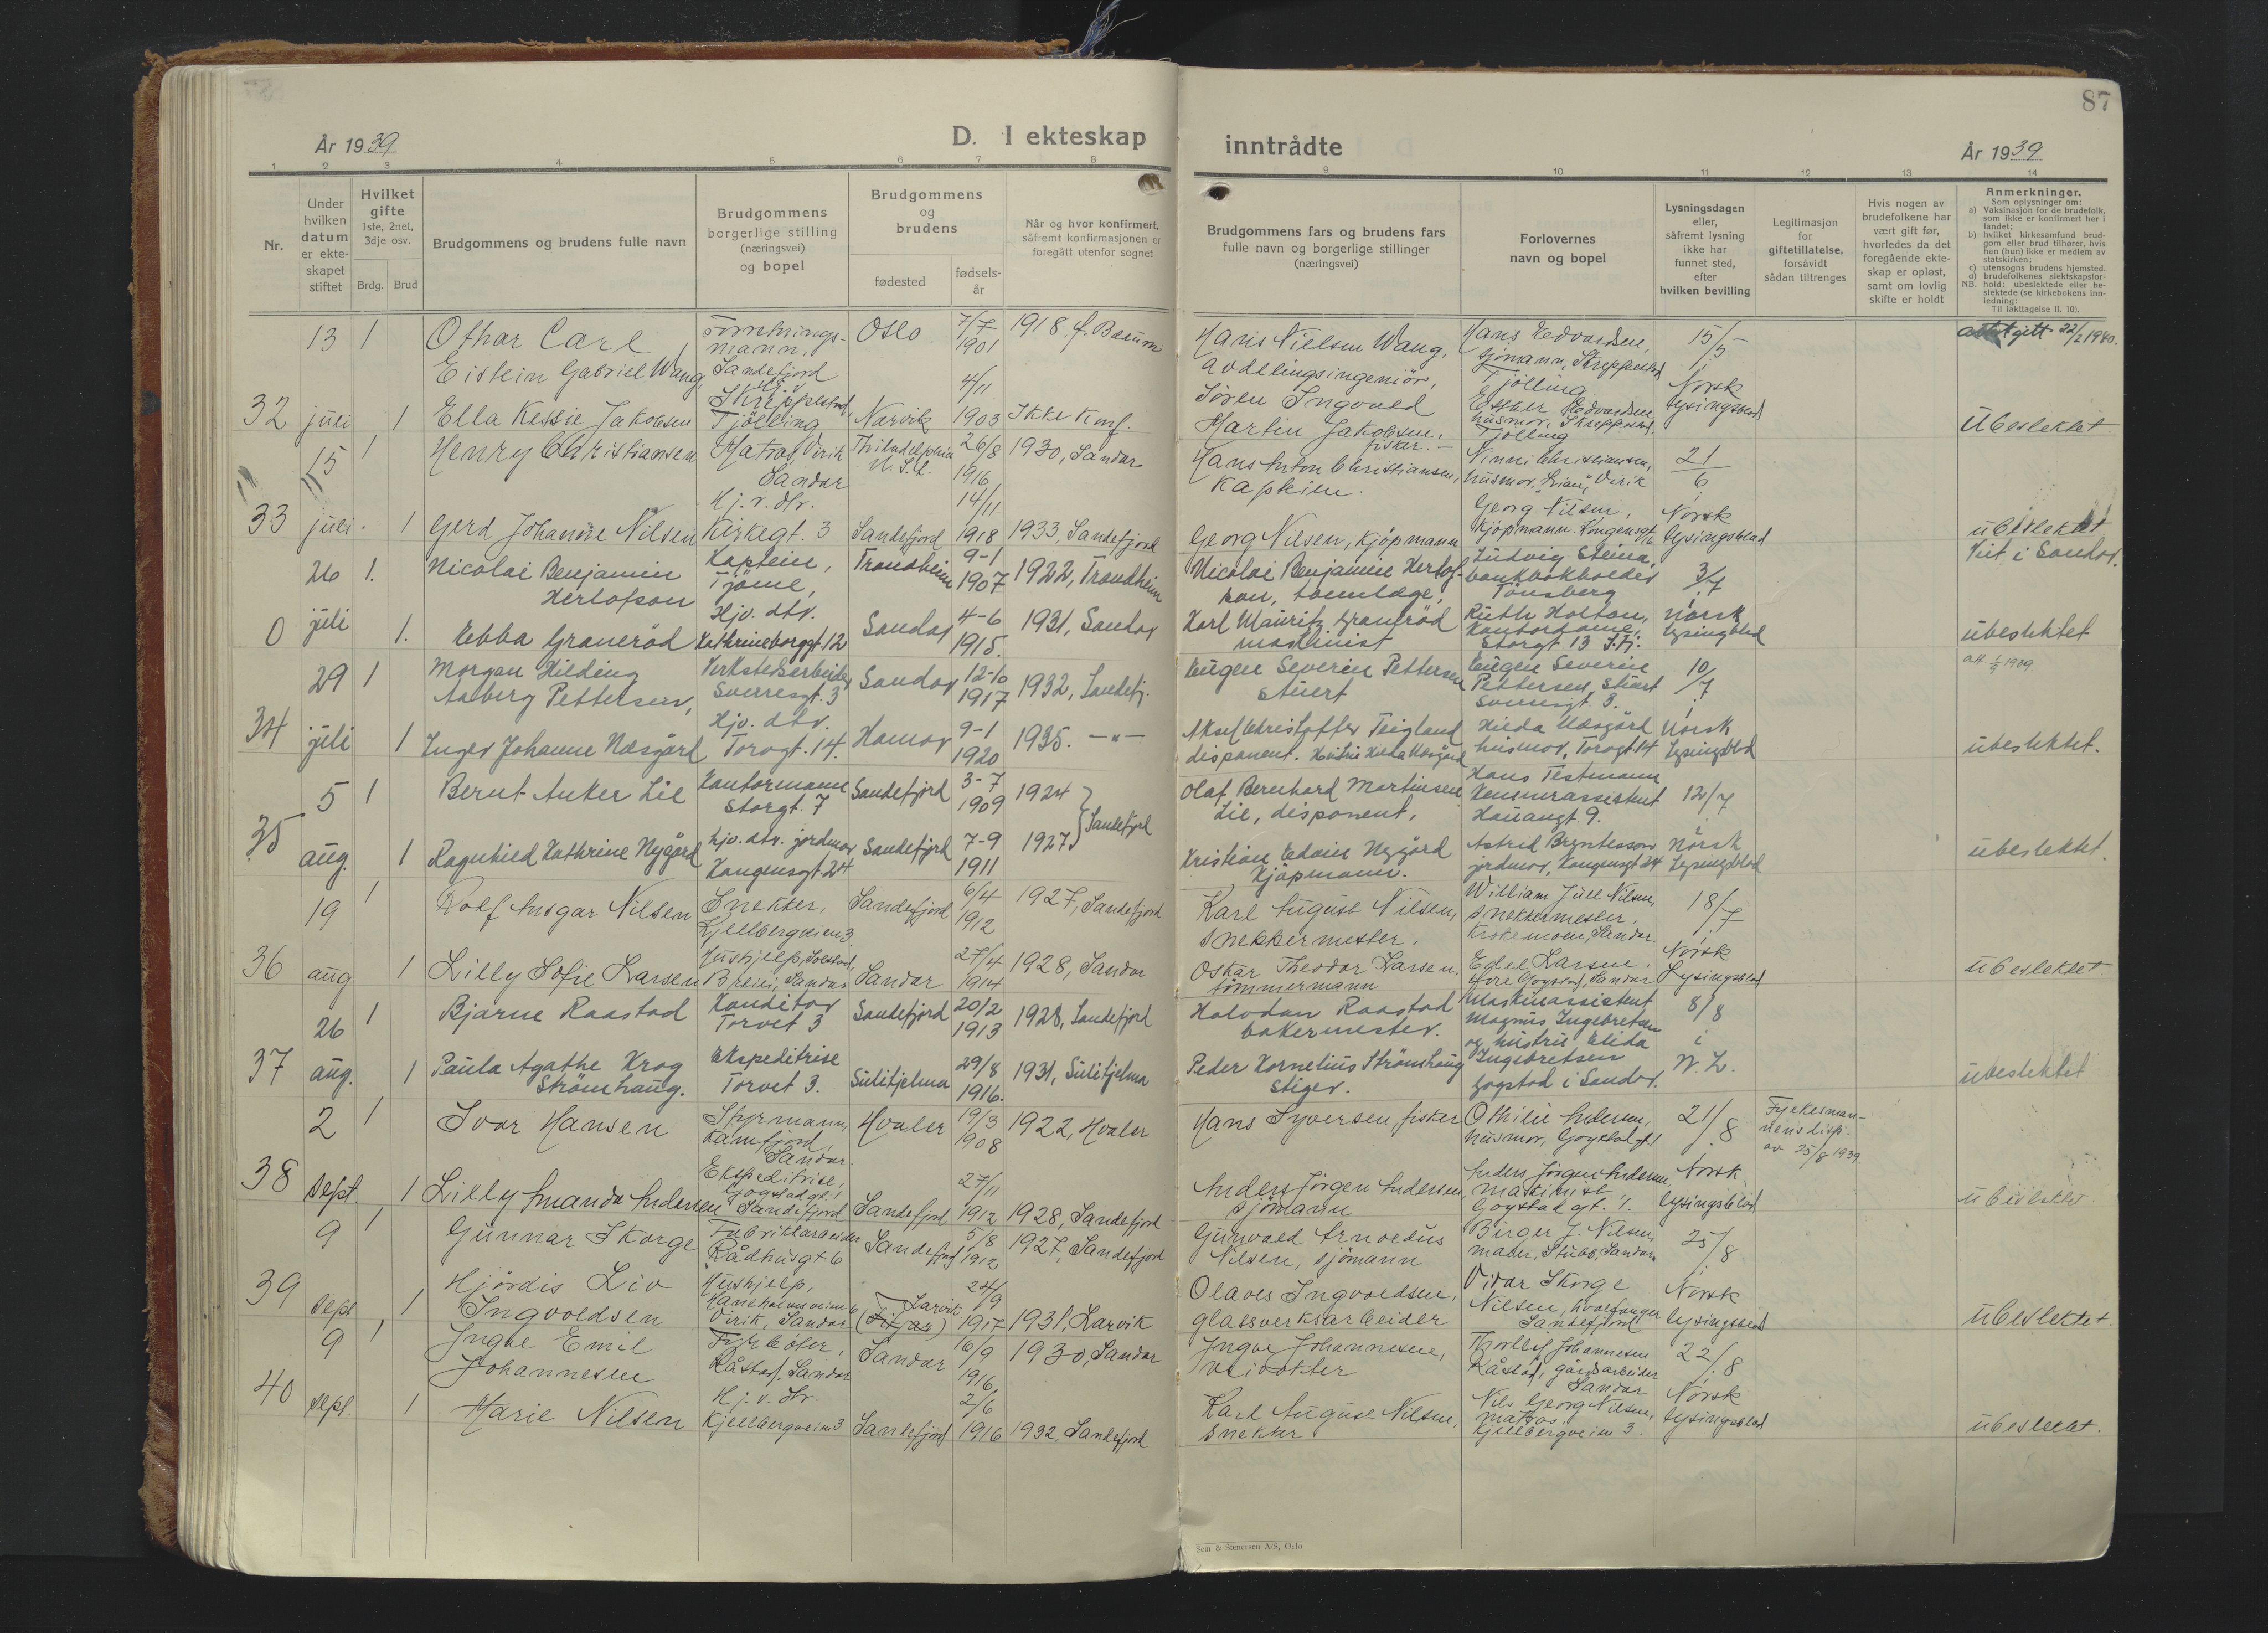 87
År 1939
D. I ekteskap inntrådte
År 1939
1 2 3 4 5 6 7 8 9 10 11 12 13 14
Nr.
Under hvilken datum er ekteskapet stiftet
Hvilket gifte 1ste, 2net, 3dje osv.
Brdg. Brud
Brudgommens og brudens fulle navn
Brudgommens borgerlige stilling (næringsvei) og bopel
Brudgommens og brudens
fødested
fødselsår
Når og hvor konfirmert, såfremt konfirmasjonen er foregått utenfor sognet
Brudgommens fars og brudens fars fulle navn og borgerlige stillinger (næringsvei)
Forlovernes navn og bopel
Lysningsdagen eller, såfremt lysning ikke har funnet sted, efter hvilken bevilling
Legitimasjon for giftetillatelse, forsåvidt sådan tiltrenges
Hvis nogen av brudefolkene har vært gift før, hvorledes da det foregående ekteskap er opløst, samt om lovlig skifte er holdt
Anmerkninger.
Som oplysninger om:
a) Vaksinasjon for de brudefolk, som ikke er konfirmert her i landet;
b) hvilket kirkesamfund brudgom eller brud tilhører, hvis han (hun) ikke er medlem av statskirken;
c) utensogns brudens hjemsted.
d) brudefolkenes slektskapsforhold: ubeslektede eller beslektede (se kirkebokens innledning:
NB. Til iakttagelse II. 10).
32
13 juli
1
Othar Carl Eistein Gabriel Wang,
Forretningsmann, Sandefjord
Oslo
7/7 1901
1918
Hans Nielsen Wang, avdelingsingeniör,
Hans Edvardsen, sjömann, Skreppestad Tjölling
15/5 i Norsk lysingsblad
attest gitt 22/2 1940.
1
Ella Kessie Jakobsen
Skreppestad, Tjölling
Narvik
4/11 1903
Ikke konf.
Sören Ingvald Martin Jakobsen, fisker.
Esther Edvardsen husmor, Skreppestad. Tjölling
Ubeslektet
33
15 juli
1
Henry Christiansen
Matros, Virik Sandar
Philadelphia U.S.A.
26/8 1916
1930, Sandar
Hans Anton Christiansen, kaptein.
Ninni Christiansen, husmor, Virik
21/6 i Norsk lysingsblad
1
Gerd Johanne Nilsen
Hj. v. dtr. Kirkegt. 3
Sandefjord
14/11 1918
1933, Sandefjord
Georg Nilsen, kjöpmann
Georg Nilsen, kjöpmann. Kongensgt.
ubeslektet
0
26 juli
1.
Nicolai Benjamin Herlofson
Kaptein, Tjöme,
Trondheim
9-1 1907
1922, Trondheim
Nicolai Benjamin Herlofson, tannlæge,
Ludvig Steina, bankbokholder Tönsberg
3/7 i Norsk lysingsblad
Viet i Sandar.
1.
Ebba Graneröd
Hjv. dtr. Kathrineborggt. 12
Sandar
4-6 1915.
1931, Sandar
Karl Mauritz Graneröd maskinist
Ruth Holtan, kontordame, Storgt 13 S.fj.
ubeslektet
34
29 juli
1
Morgan Hilding Aaberg Pettersen,
Verkstedsarbeider Sverresgt. 3
Sandar
12-10 1917
1932, Sandefj.
Eugen Severin Pettersen stuert
Eugen Severin Pettersen, stuert Sverresgt 3.
10/7 i Norsk Lysingsblad
att 1/9 1909.
1
Inger Johanne Næsgård
Hjv. dtr. Torvgt. 14.
Hamar
9-1 1920
1935. —"—
Christoffer Teigland disponent.
Hilda Næsgård husmor, Torvgt 14
ubeslektet.
35
5 aug.
1
Bernt Anker Lie
Kontormann Storgt. 7
Sandefjord
3-7 1909
1924
Olaf Bernhard Martinsen Lie, disponent,
Hans Testmann Kemnerassistent Hauangt 9.
12/7 i Norsk Lysingsblad
1
Ragnhild Kathrine Nygård
hjv. dtr. jordmor Kongensgt 24
Sandefjord
7-9 1911
1927 } Sandefjord
Kristian Edvin Nygård Kjöpmann.
Astrid Bryntesson jordmor, Kongensgt 24
ubeslektet.
36
19 aug
1
Rolf Ansgar Nilsen
Snekker, Kjellbergveien 3
Sandefjord
6/4 1912
1927, Sandefjord
Karl August Nilsen, snekkermester.
William Juel Nilsen, snekkermester, Krokemoen, Sandar
18/7 i Norsk Lysingsblad
1
Lilly Sofie Larsen
Hushjelp, Solstad, Breili, Sandar
Sandar
27/4 1914
1928, Sandar
Oskar Theodor Larsen, tömmermann
Edel Larsen, Gogstad, Sandar
ubeslektet
37
26 aug.
1
Bjarne Raastad
Konditor Torvet 3
Sandefjord
20/2 1913
1928, Sandefjord
Halvdan Raastad bakermester.
Maskinassistent Magnus Ingebretsen og hustru Elida Ingebretsen Gogstad i Sandar.
8/8 i N. L.
1
Paula Agathe Krog Strömhaug.
Ekspeditrise Torvet 3.
Sulitjelma
29/8 1916.
1931, Sulitjelma
Peder Kornelius Strömhaug Stiger.
ubeslektet
38
2 sept
1
Ivar Hansen
Styrmann, Kamfjord, Sandar.
Hvaler
19/3 1908
1922, Hvaler
Hans Syversen fisker
Othilie Andersen, husmor, Gogstadgt. 1
21/8 i Norsk lysingsblad
Fylkesmannens disp. av 25/8 1939
1
Lilly Amanda Andersen
Ekspeditrise, Gogstadgt. 1 Sandefjord
Sandefjord
27/11 1912
1928, Sandefjord
Anders Jörgen Andersen, sjömann
Anders Jörgen Andersen, maskinist Gogstadgt. 1.
ubeslektet
39
9 sept
1
Gunnar Skorge
Fabrikkarbeider Rådhusgt 6
Sandefjord
5/8 1912
1927, Sandefjord
Gunvald Arnodus Nilsen, sjömann
Birger J. Nilsen, maler, Stubb, Sandar
25/8 i Norsk lysingsblad
1
Hjördis Liv Ingvoldsen
Hushjelp, Haneholmveien 6 Virik, Sandar
Larvik (Titjar)
24/9 1917
1931, Larvik
Olaves Ingvoldsen, glassverksarbeider
Vidar Skorge Nilsen, hvalfanger Sandefjord
ubeslektet.
40
9 sept.
1
Ingve Emil Johannesen
Fyrböter, Råstad, Sandar
Sandar
6/9 1916
1930, Sandar
Ingve Johannesen, veivokter
Thorleif Johannesen Råstad, gårdsarbeider Sandar
22/8 i Norsk lysingsblad
1
Marie Nilsen
Hj. v. dtr. Kjellbergveien 3
Sandefjord
2/6 1916
1932, Sandefjord
Karl August Nilsen, snekker
Nils Georg Nilsen, matros, Kjellbergveien 3.
ubeslektet.
Sem & Stenersen A/S, Oslo